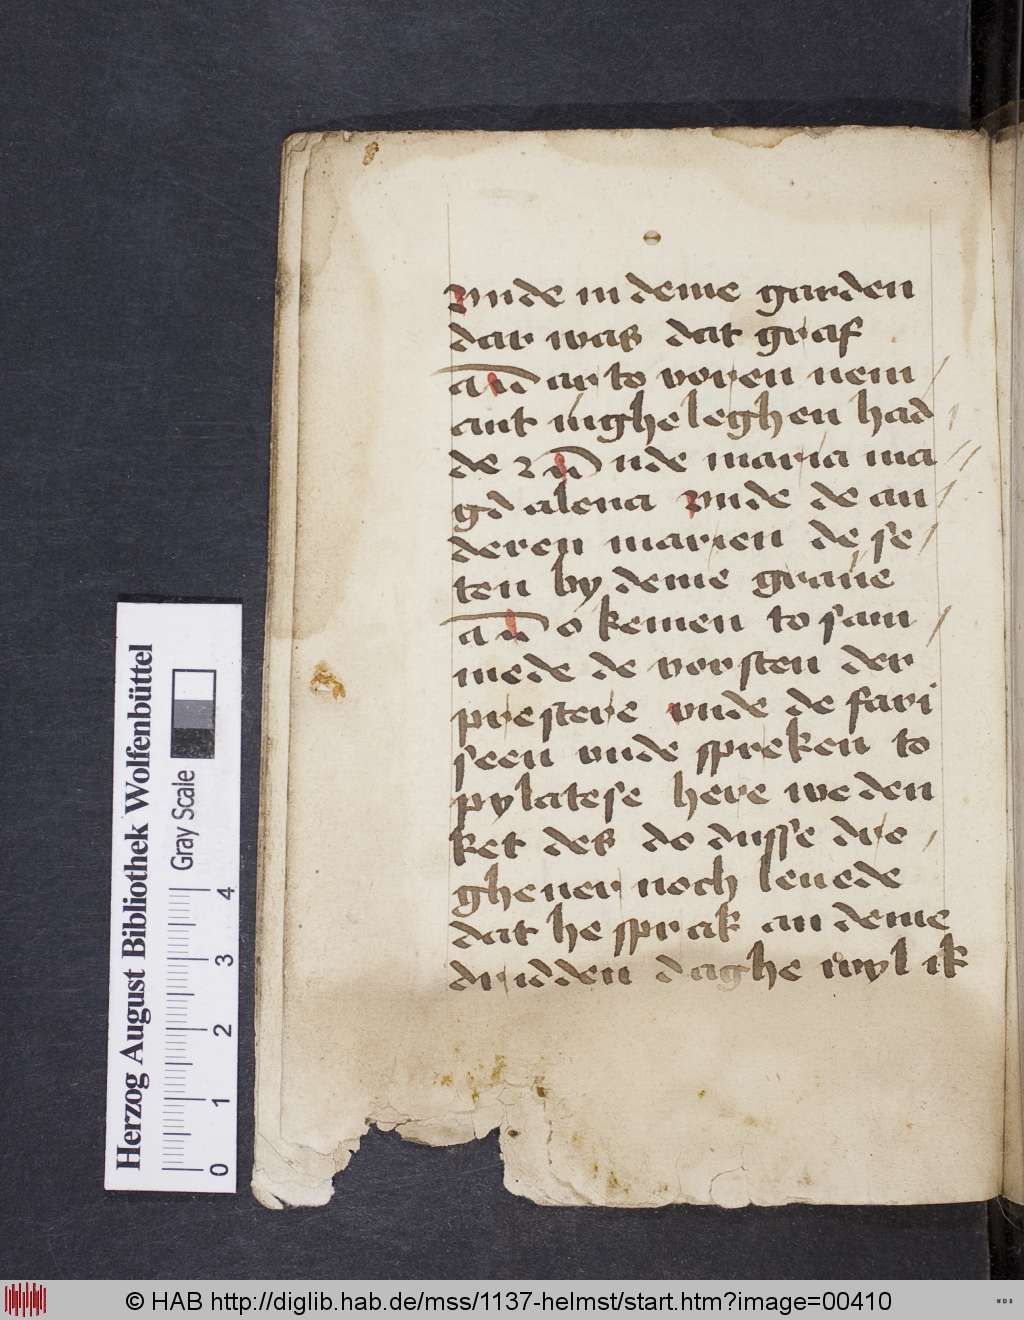 vnde in deme garden
dar was dat graf
dar to voren nem
ant ingheleghen had
de vnde maria ma
gdalena vnde de an
deren marien de se
ten by deme graue
do kemen to sam
mede de vorsten der
prestere vnde de fari
seen vnde spreken to
pylatese here we den
ket des do dusse dro
ghener noch leuede
dat he sprak an deme
dridden daghe wyl ik
Herzog August Bibliothek Wolfenbüttel
Gray Scale
0 1 2 3 4
© HAB http://diglib.hab.de/mss/1137-helmst/start.htm?image=00410